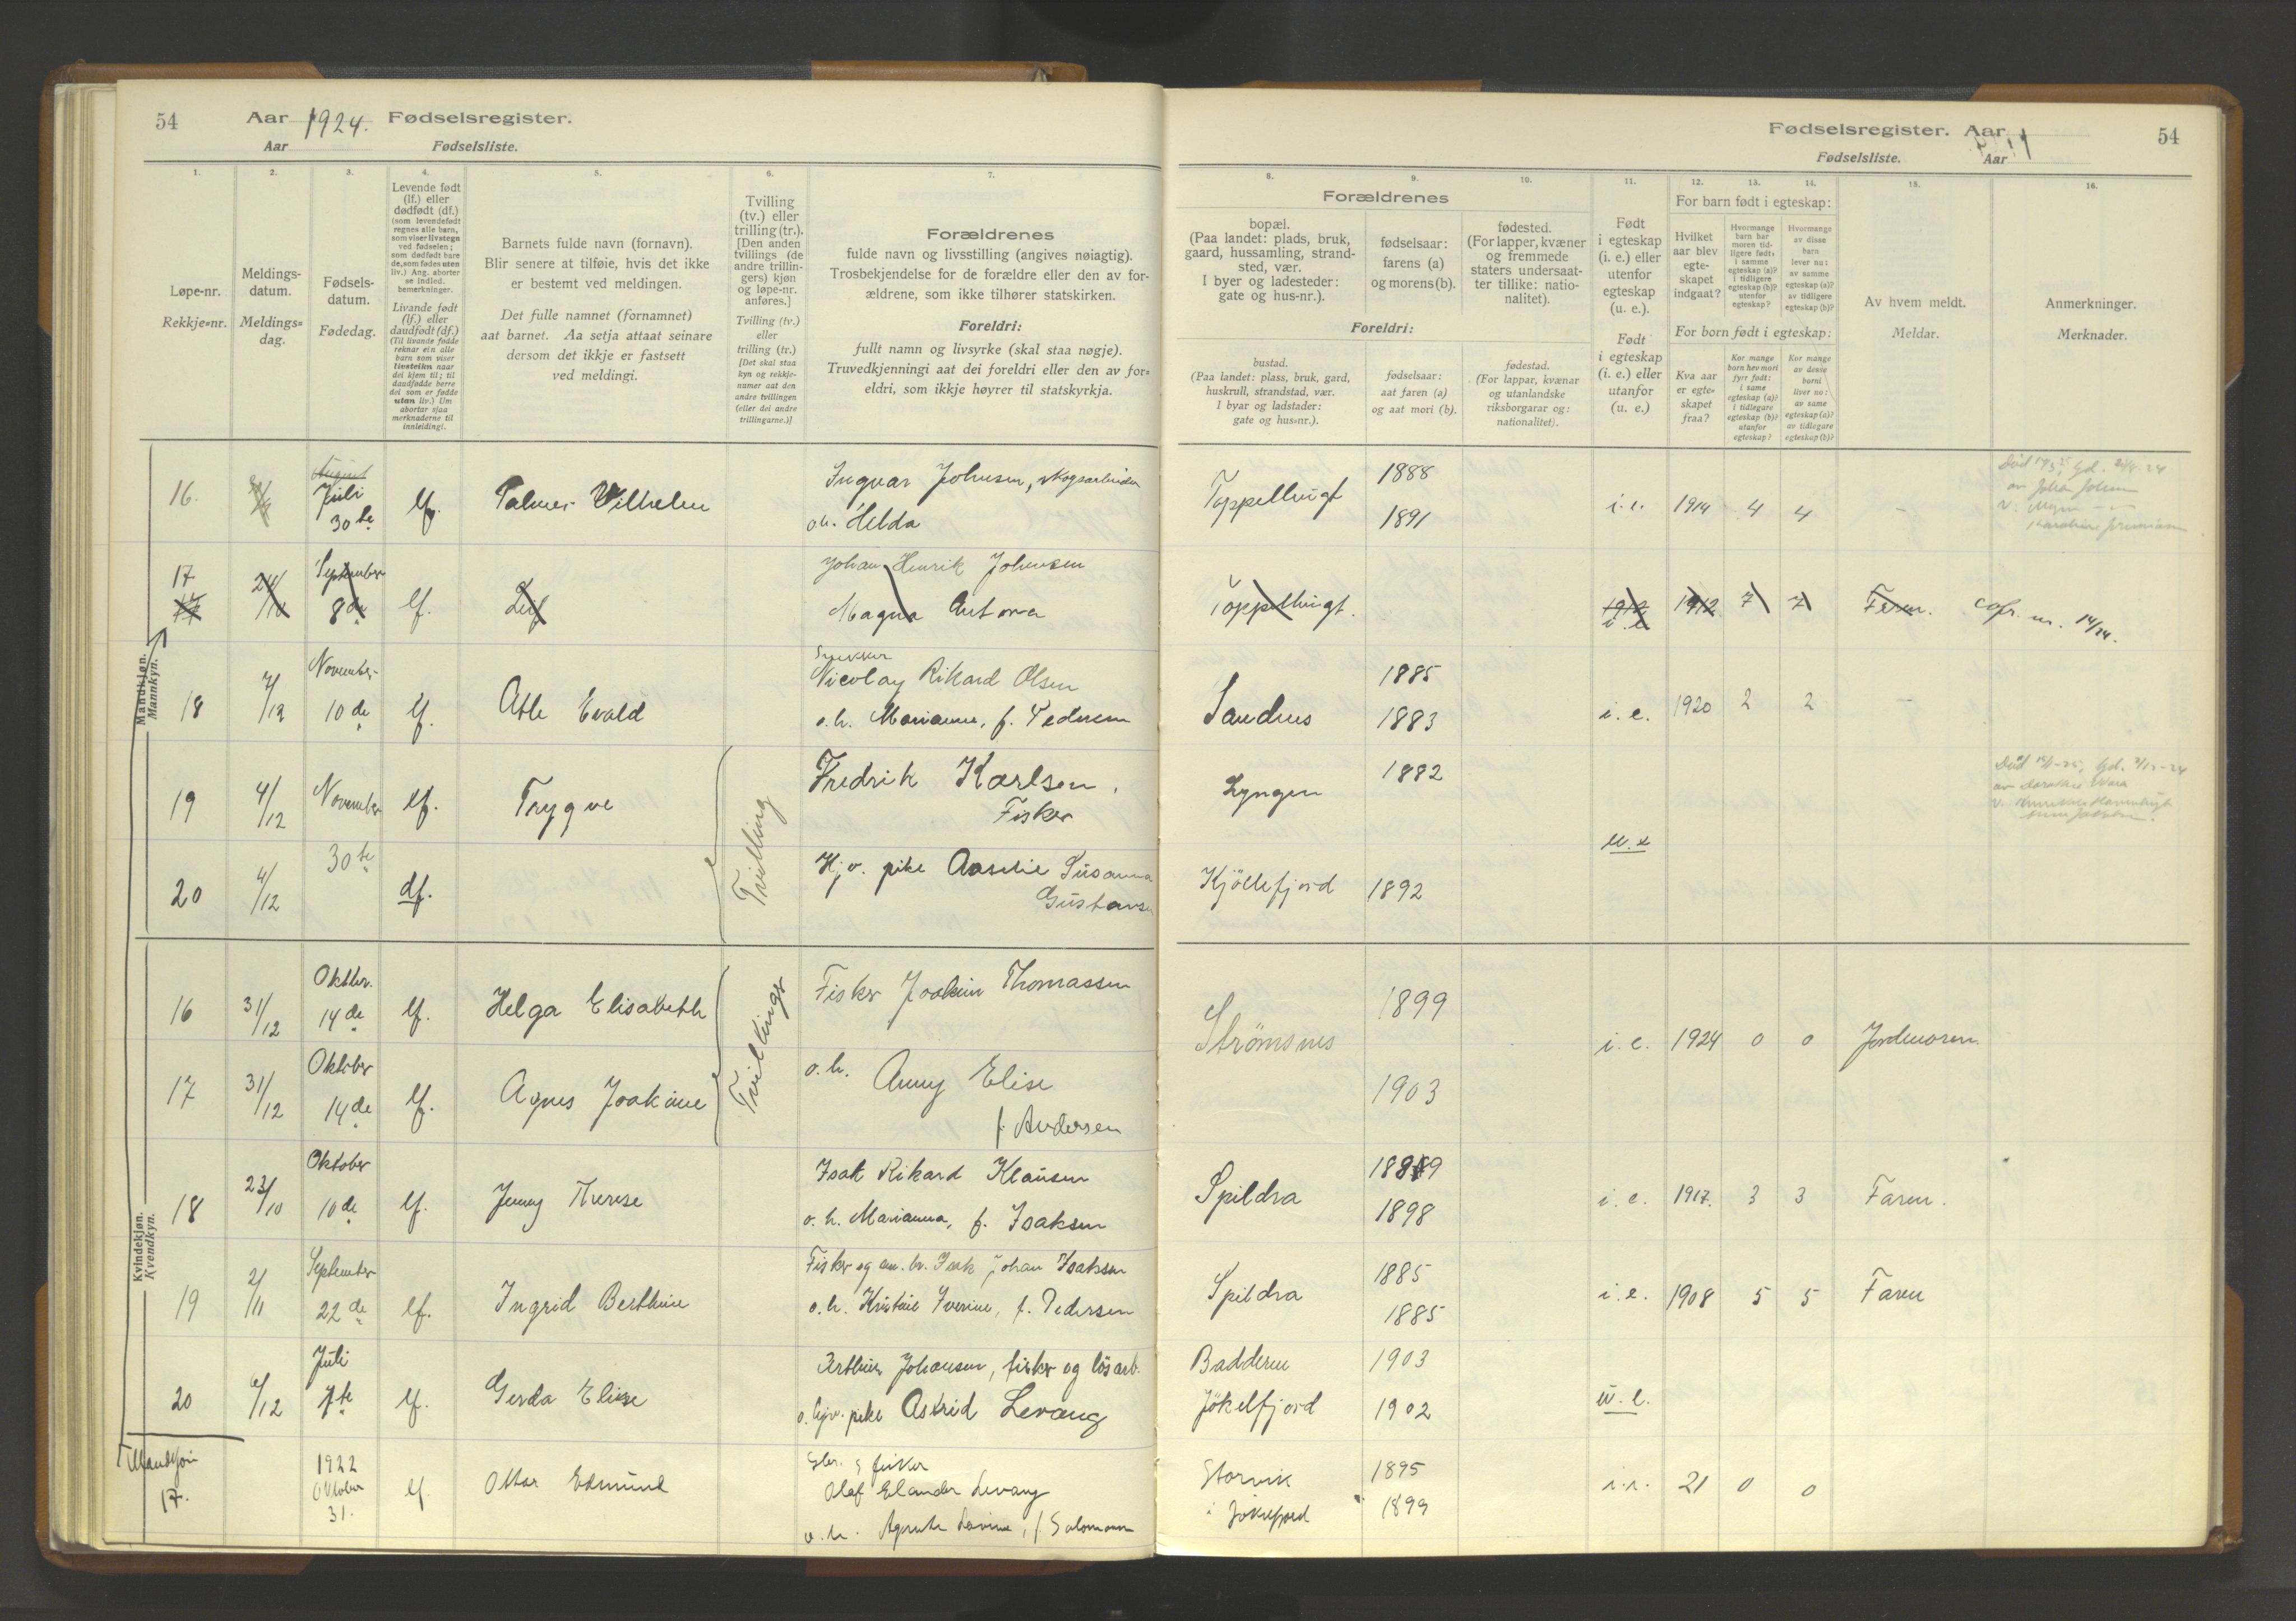 54
Aar 1924. Fødselsregister.
Aar Fødselsliste.
Fødselsregister. Aar
Fødselsliste. Aar
54
1. 2. 3. 4. 5. 6. 7.
8. 9. 10. 11. 12. 13. 14. 15. 16.
Løpe-nr.
Rekkje=nr.
Meldings-
datum.
Meldings=
dag.
Fødsels-
datum.
Fødedag.
Levende født
(lf.) eller
dødfødt (df.)
(som levendefødt
regnes alle barn,
som viser livstegn
ved fødselen;
som dødfødt bare
de, som fødes uten
liv.) Ang. aborter
se indled.
bemerkninger.
Livande født
(lf.) eller
daudfødt (df.)
(Til livande fødde
reknar ein alle
barn som viser
livsteikn naar
dei kjem til; til
daudfødde berre
dei som er fødde
utan liv.) Um
abortar sjaa
merknaderne til
innleidingi.
Barnets fulde navn (fornavn).
Blir senere at tilføie, hvis det ikke
er bestemt ved meldingen.
Det fulle namnet (fornamnet)
aat barnet. Aa setja attaat seinare
dersom det ikkje er fastsett
ved meldingi.
Tvilling
(tv.) eller
trilling (tr.).
[Den anden
tvillings (de
andre trillin-
gers) kjøn
og løpe-nr.
anføres.]
Tvilling (tv.)
eller
trilling (tr.)
[Det skal staa
kyn og rekkje-
numer aat den
andre tvillingen
(eller dei andre
trillingarne.)]
Forældrenes
fulde navn og livsstilling (angives nøiagtig).
Trosbekjendelse for de forældre eller den av for-
ældrene, som ikke tilhører statskirken.
Foreldri:
fullt namn og livsyrke (skal staa nøgje).
Truvedkjenningi aat dei foreldri eller den av for=
eldri, som ikkje høyrer til statskyrkja.
Forældrenes
bopæl.
(Paa landet: plads, bruk,
gaard, hussamling, strand-
sted, vær.
I byer og ladesteder:
gate og hus-nr.).
fødselsaar:
farens (a)
og morens (b).
fødested.
(For lapper, kvæner
og fremmede
staters undersaat-
ter tillike: natio-
nalitet).
Foreldri:
bustad.
(Paa landet: plass, bruk, gard,
huskrull, strandstad, vær.
I byar og ladstader:
gate og hus=nr.).
fødselsaar:
aat faren (a)
og aat mori (b).
fødestad.
(For lappar, kvænar
og utanlandske
riksborgarar og:
nationalitet).
Født
i egteskap
(i. e.) eller
utenfor
egteskap
(u. e.).
Født
i egteskap
(i. e.) eller
utanfor
(u. e.)
For barn født i egteskap:
Hvilket
aar blev
egte-
skapet
indgaat?
Hvormange
barn har
moren tid-
ligere født:
i samme
egteskap (a)?
i tidligere
egteskap (b)?
utenfor
egteskap?
Hvormange
av disse
barn
lever nu:
av samme
egteskap (a)?
av tidligere
egteskap (b)?
For born født i egteskap:
Kva aar
er egte-
skapet
fraa?
Kor mange
born hev mori
fyrr født:
i same
egteskap (a)?
i tidlegare
egteskap (b)?
utanfor
egteskap?
Kor mange
av desse
borni
liver no:
av same
egteskap (a)?
av tidlegare
egteskap (b)?
Av hvem meldt.
Meldar.
Anmerkninger.
Merknader.
Mandkjøn.
Mannkyn.
16. August Juli 30te lf. Palmer Wilhelm Ingvar Johnsen, skogsarbeider
o.h. Helda
Toppelbugt 1888 1891 i.e. 1914 4 4 –
17 24/10 September 8de lf. Leif Johan Henrik Johnsen
Magna Antona
Toppelbugt. 1912 i.e. 1912 7 7 Faren. cofr. nr. 14/24.
18 7/12 November 10de lf. Atle Evald Snekker
Nicolay Rikard Olsen
o.h. Marianne, f. Pedersen
Sandnes 1885 1883 i.e. 1920 2 2 –
19 4/12 November lf. Trygve Fredrik Karlsen,
Fisker
Lyngen 1882
Tvilling
u.e
20 4/12 30te df. Hjv. pike Susanna
Gustavsen
Kjöllefjord 1892
Kvindekjøn.
Kvendkyn.
16 31/12 Oktbr. 14de lf. Helga Elisabeth Fisker Joakim Thomassen
Tvillinger
Strømsnes 1899 i.e. 1924 0 0 Jordmoren
17 31/12 Oktober 14de lf. Agnes Joakime o.h. Anny Elise
f. Andersen
1903
18 23/10 Oktober 10de lf. Jenny Therese Isak Rikard Klausen
o.h. Marianna, f. Isaksen
Spildra 1889 1898 i.e. 1917. 3 3 Faren.
19 2/11 September 22de lf. Ingrid Berthine Fisker og Isak Johan Isaksen
o.h. Kristine Iverine, f. Pedersen
Spildra 1885 1885 i.e. 1908 5 5 Faren
20 6/12 Juli 7te lf. Gerda Elise Johansen, fisker og lösarb.
o. hjv. pike Astrid Levang
Badderen 1903
Jökelfjord 1902 u.e.
Mandkjön
17. 1922 Oktober 31. lf. Ottar Edmund Gbr. & fisker
Olaf Elander Levang
o.h. Agnete Lovise, f. Salomonsen
Storvik 1895
i Jökelfjord 1899 i.e. 21 0 0